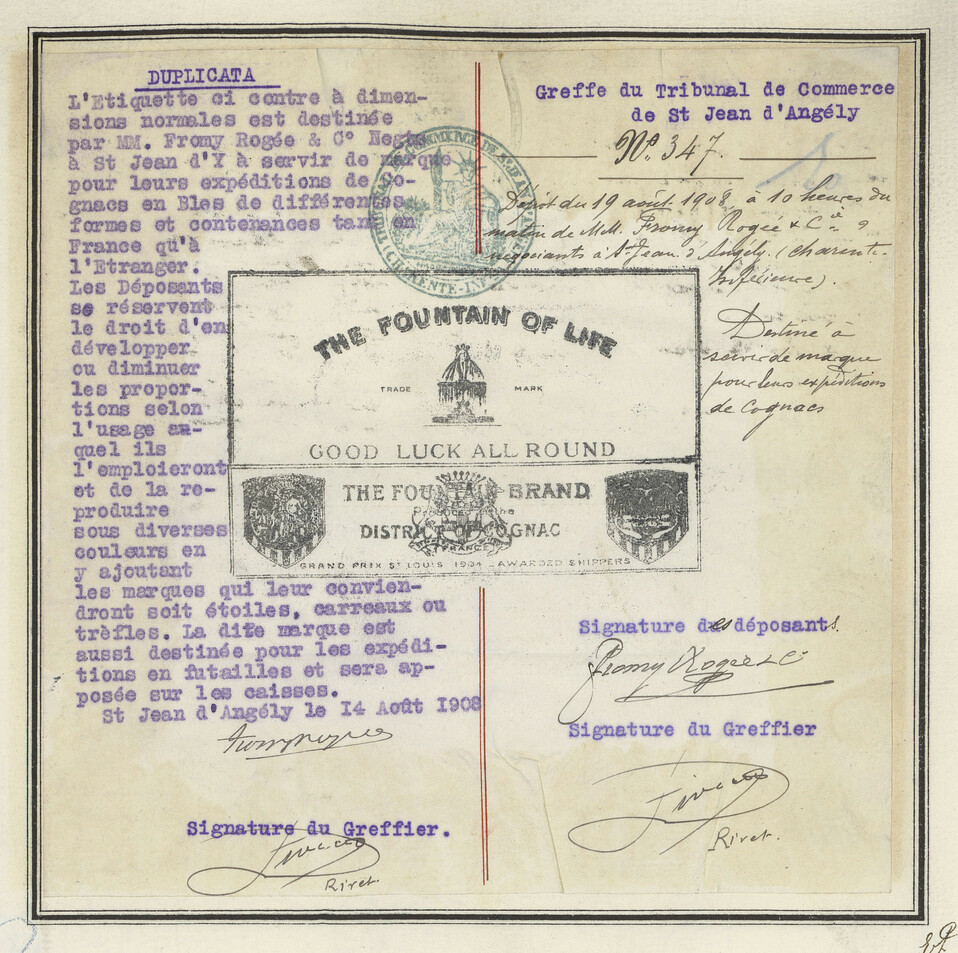 DUPLICATA
L'Etiquette ci contre à dimen-
sions normales est destinée
par MM. Fromy Rogée & C° Negts
à St Jean d'Y à servir de marque
pour leurs expéditions de co-
gnacs en Bles de différentes
formes et contenances tant en
France qu'à
l'Etranger.
Les Déposants
se réservent
le droit d'en
développer
ou diminuer
les propor-
tions selon
l'usage au-
quel ils
l'emploieront
et de la re-
produire
sous diverses
couleurs en
y ajoutant
les marques qui leur convien-
dront soit étoiles, carreaux ou
trèfles. La dite marque est
aussi destinée pour les expédi-
tions en futailles et sera ap-
posée sur les caisses.
St Jean d'Angély le 14 Août 1908
Signature du Greffier.
Riret.
THE FOUNTAIN OF LIFE
TRADE MARK
GOOD LUCK ALL ROUND
THE FOUNTAIN BRAND
Produced in the
DISTRICT OF COGNAC
FRANCE
GRAND PRIX ST LOUIS 1904 AWARDED SHIPPERS
Greffe du Tribunal de Commerce
de St Jean d'Angély
N° 347.
Dépôt du 19 août 1908, à 10 heures du
matin de M.M. Fromy Rogée & Cie,
négociants à St Jean d'Angély. (Charente-
Inférieure).
Destiné à
servir de marque
pour leurs expéditions
de Cognacs
Signature des déposants.
Fromy Rogée & Cie
Signature du Greffier
Riret.